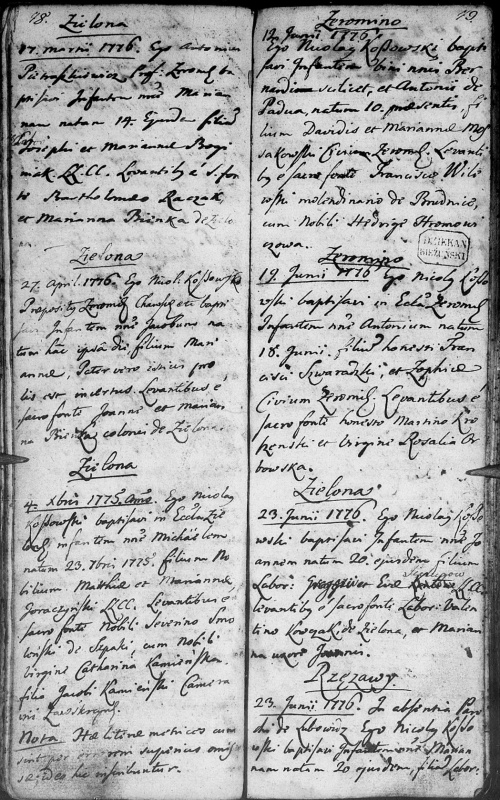 78.
Zielona
17. Martii 1776. Ego Antonius
Infantem nnē Marian
nam natam 14. Ejusdē filiā
Josephi et Mariannæ
LL. CC. Levantib9 è S. fon
te Bartholomeo Raczak,
et Marianna Bienka de Zielo
Zielona
27. April. 1776. Ego Nicol. Koßowski
Præposity Zeromē. bapti
savi Infantem nnē Jacobum na
tum hac ipsa die filium Mari
annæ, Pater vero istius pro
lis est incertus. Levantibus è
sacro fonte Joannes et Marian
na Bienka coloni de Zielona.
Zielona
4. Xbris 1775. Anno. Ego Nicolay
Koßowski baptisavi in Eccla Zie
infantem nnē Michaelem
natum 23. 7bris 1775. filium No
bilium Matthiæ et Mariannæ
Joraczyński LL. CC. Levantibus è
sacro fonte Nobili Severino Smo
de Sępaki, cum Nobili
Virgine Catharina Kamieńska
filia Jacobi Kamieński Camera
rii
Nota. Hæ literæ metrices cum
superius omiß
se, ideo hic inscribuntur.
79
Zeromino
12. Junii 1776.
Ego Nicolay Koßowski bapti
savi Infantem bini nnis Ber
nardinum scilicet, et Antonii de
Padua, natum 10. præsentis, fi
lium Davidis et Mariannæ Mos
sakowski Civium Zeromē. Levanti
b9 è sacro fonte Francisco Wili
wski molendinario de Brudnice,
cum Nobili Hedvige Hromowi
czowa.
DZIEKAN
BIEŻUŃSKI
Zeromino
19. Junii 1776 Ego Nicolay Koßo
wski baptisavi in Eccla Zeromē.
Infantem nnē Antonium natum
16. Junii. filiū honesti Fran
cisci Szwaradzki, et Zophiæ
Civium Zeromē. Levantibus è
sacro fonte honesto Martino Kro
penski et Virgine Rosalia Or
bowska.
Zielona
23. Junii 1776. Ego Nicolay Koßo
wski baptisavi Infantem nnē Jo
annem natum 20. ejusdem filium
Labor: Gregorii et Evæ LL. CC.
levantib9 è sacro fonte, Labor: Valen
tino Kowczak de Zielona, et Marian
na uxore Joannis.
Rzężawy
23. Junii 1776. In absentia Paro
chi de Lubowidz Ego Nicolay Koßo
wski baptisavi Infantem nnē Marian
nam natam 20 ejusdem, filiā Labor: